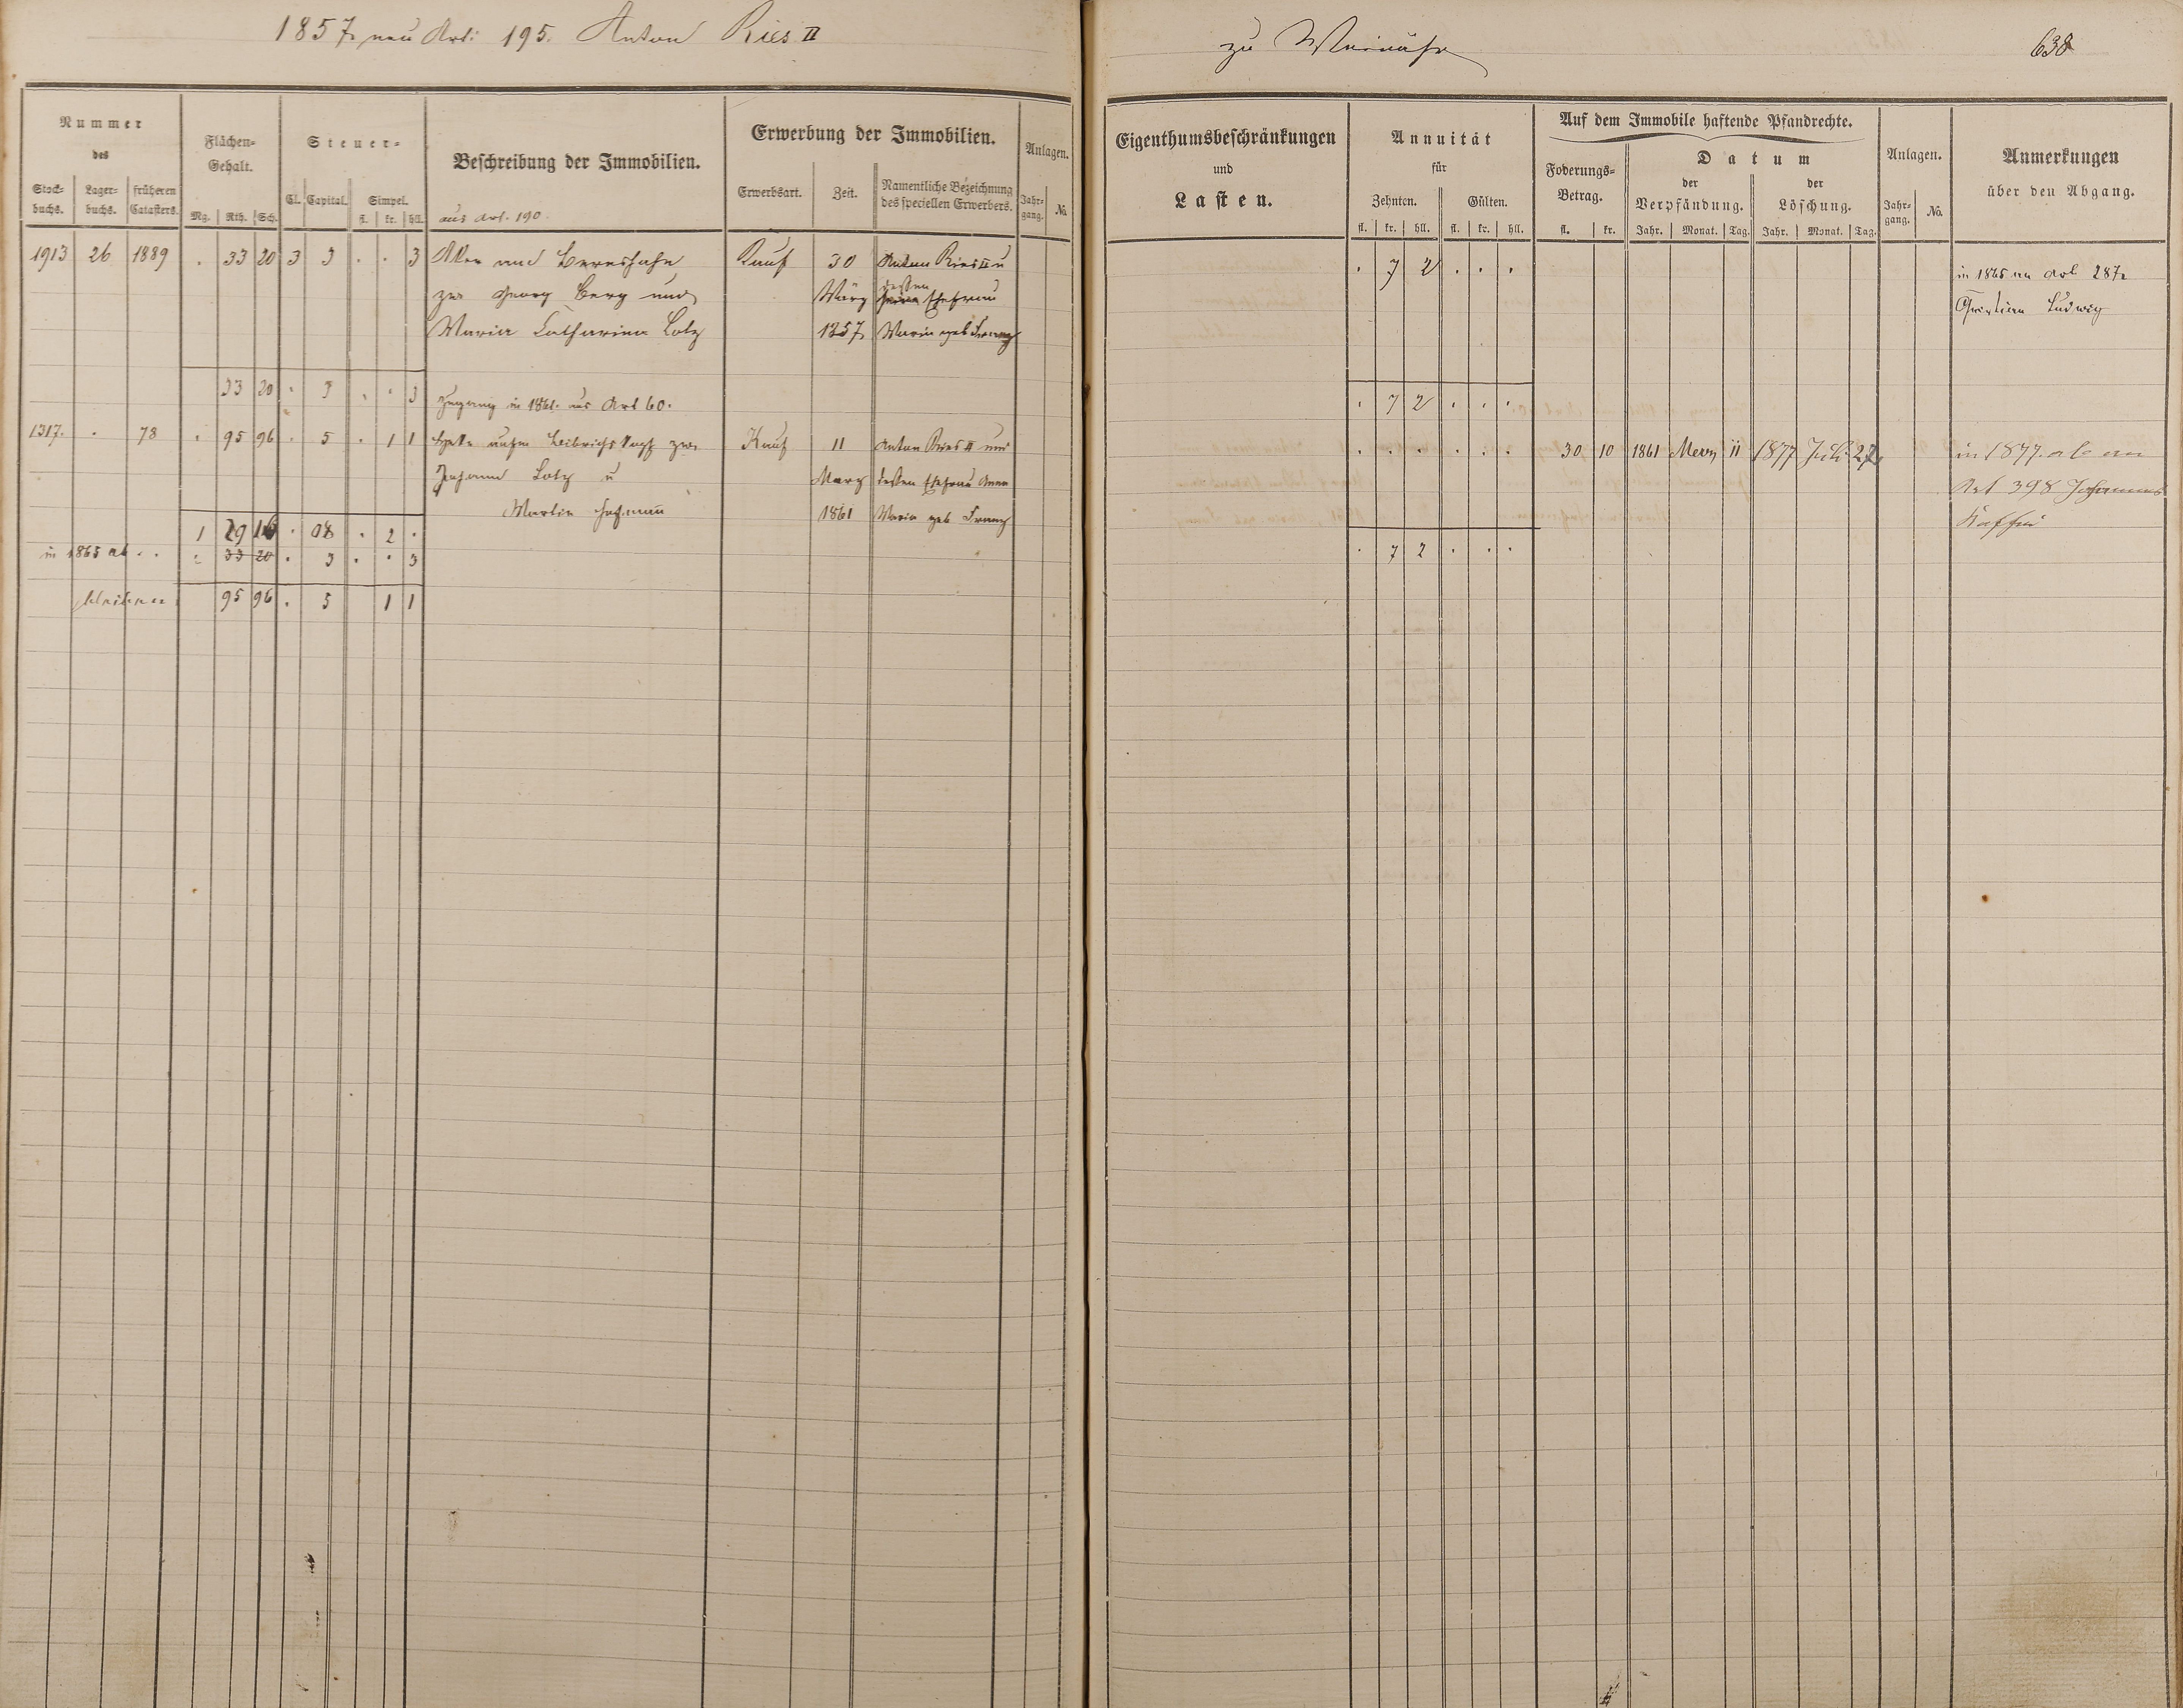 1857. neu Art: 195. Anton Ries II
zu Weinähr 638
Nummer
des
Stock-
buchs.
Lager-
buchs.
früheren
Catasters.
Flächen-
Gehalt.
Mg. Rth. Sch.
Steuer-
Cl. Capital. Simpel.
fl. kr. hll.
Beschreibung der Immobilien.
aus Art. 190.
Erwerbung der Immobilien.
Erwerbsart. Zeit. Namentliche Bezeichnung
des speciellen Erwerbers.
Anlagen.
Jahr-
gang. No.
Eigenthumsbeschränkungen
und
Lasten.
Annuität
für
Zehnten. Gülten.
fl. kr. hll. fl. kr. hll.
Auf dem Immobile haftende Pfandrechte.
Foderungs-
Betrag.
fl. kr.
Datum
der der
Verpfändung. Löschung.
Jahr. Monat. Tag. Jahr. Monat. Tag.
Anlagen.
Jahr-
gang. No.
Anmerkungen
über den Abgang.
1913 26 1889 . 33 20 3 3 . . 3 Kauf 30 Anton Ries II u . 7 2 . . .
zw. Georg Berg und März dessen Ehefrau
Maria Catharina Lotz 1857 Maria geb Franz
in 1865 an Art 287
Christian Ludwig
33 20 . 3 . . 3 . 7 2 . . .
Zugang in 1861. aus Art 60.
1317. . 78 . 95 96 . 5 . 1 1 zw. Kauf 11 Anton Ries II und . . . . . . 30 10 1861 Merz 11 1877 Juli 27
Johann Lotz u Merz dessen Ehefrau Anna
Martin Hofmann 1861 Maria geb Franz
in 1877 ab an
Art 398 Johannes
1 29 16 . 08 . 2 .
in 1865 ab . . . 33 20 . 3 . . 3 . 7 2 . . .
bleiben 95 96 . 5 1 1